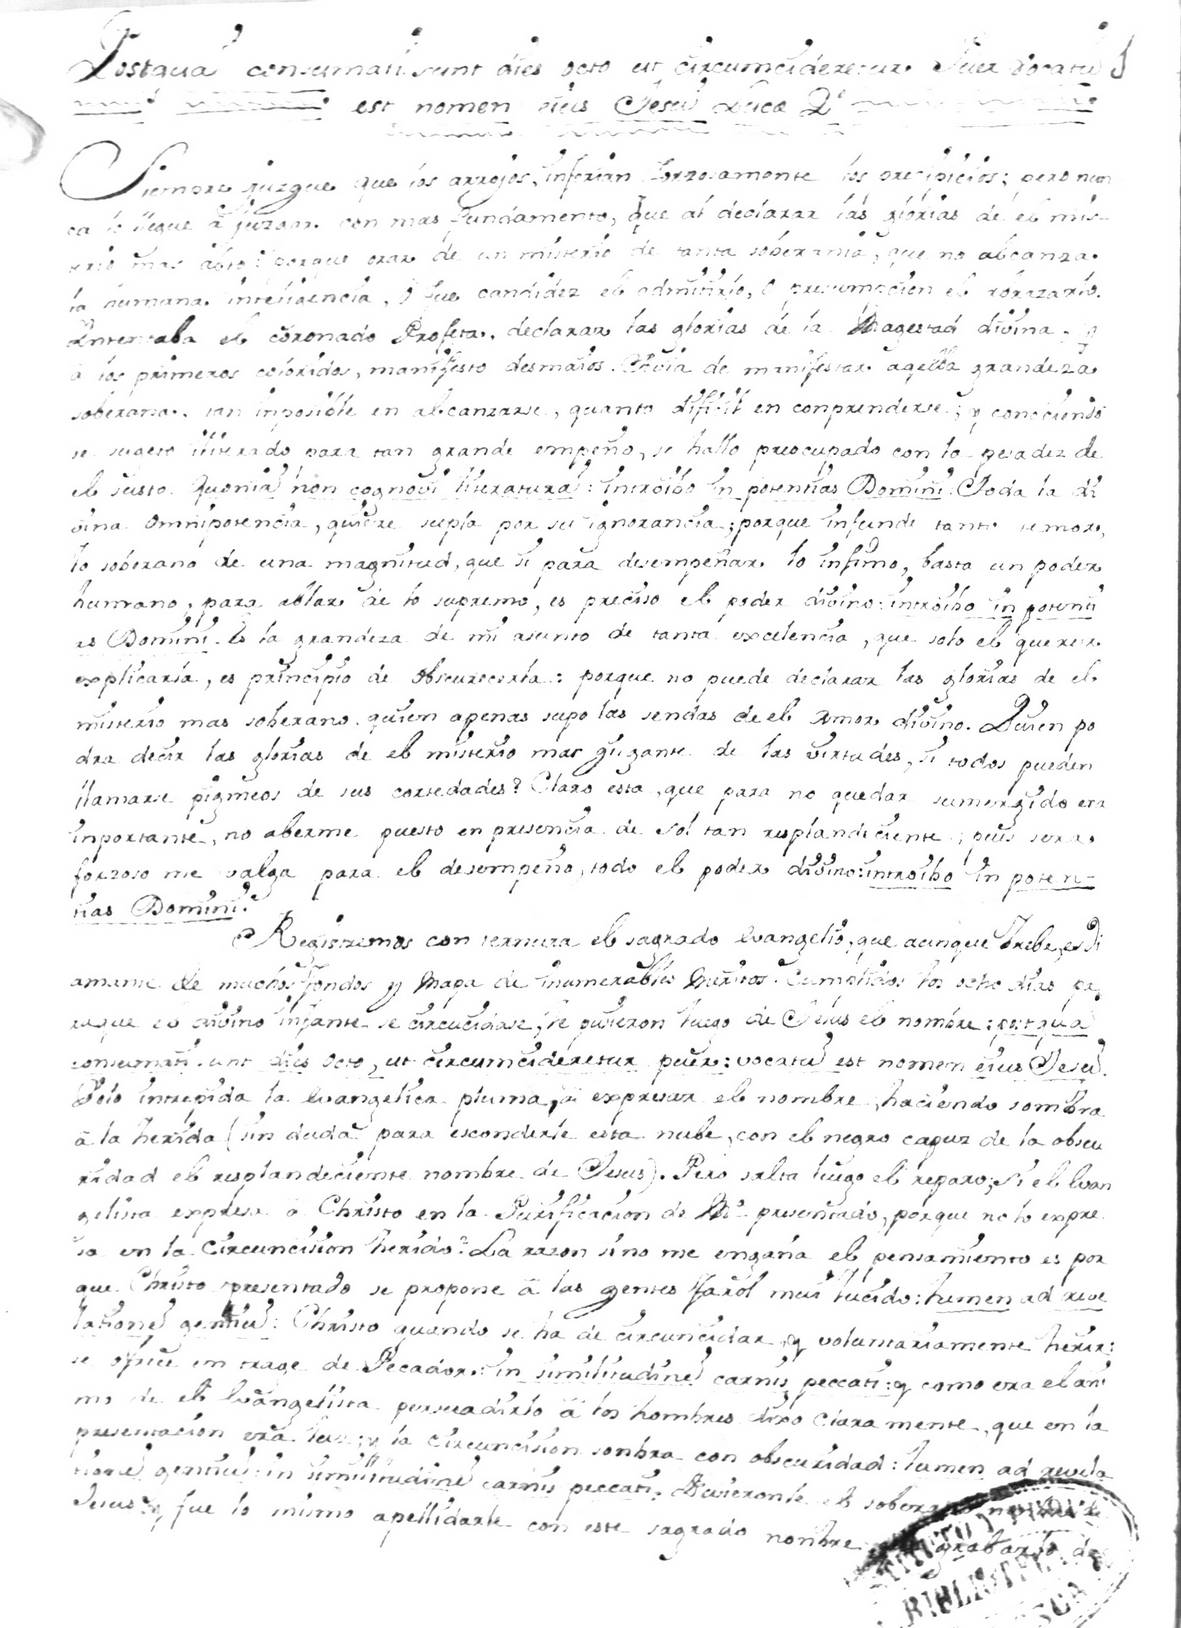 Postqua consumati sunt dies octo ut circumcideretur Puer vocatu
est nomen eius Iesu Lucæ 2º
Siempre juzgue que los arrojos, inferian forzosamente los precipicios; pero nun
ca lo llegue a juzgar con mas fundamento, que al declarar las glorias de el mis-
terio mas alto: porque orar de un misterio de tanta soberania, que no alcanza
la humana inteligencia, o fue candidez el admitirlo, o presumpcion el
Intentaba el coronado Profeta, declarar las glorias de la Magestad divina, y
a los primeros coloridos, manifesto desmaios. Havia de manifestar aqella grandeza
soberana, tan inposible en alcanzarse, quanto dificil en conprenderse; y conociendo
se sugeto iliterado para tan grande empeño, se hallo preocupado con la pesadez de
el susto. Quonia non cognovi literatura: introibo in potentias Domini. Toda la di
vina Omnipotencia, quiere supla por su ignorancia; porque infunde tanto temor,
lo soberano de una magnitud, que si para desempeñar lo infimo, basta un poder
humano, para ablar de lo supremo, es preciso el poder divino: introibo in potenti
as Domini. Es la grandeza de mi asunto de tanta excelencia, que solo el querer
explicarla, es principio de obscurecerla: porque no puede declarar las glorias de el
misterio mas soberano, quien apenas supo las sendas de el Amor divino. Quien po
dra decir las glorias de el misterio mas gigante de las virtudes, si todos pueden
llamarse pigmeos de sus cortedades? Claro esta, que para no quedar sumergido era
inportante, no aberme puesto en presencia de Sol tan resplandeciente; pues sera
forzoso me valga para el desempeño, todo el poder divino: introibo in poten-
tias Domini.
Registremos con ternura el sagrado Evangelio, que aunque brebe, es Di
amante de muchos fondos y Mapa de inumerables Meritos. Cumplidos los ocho dias pa
raque el divino infante se circucidase, le pusieron luego de Jesus el nombre: postqua
consumati sunt dies octo, ut circumcideretur puer: vocatu est nomen eius Iesu.
Solo intrepida la Evangelica pluma, a expresar el nombre, haciendo sombra
â la herida (sin duda para esconderle esta nube, con el negro capuz de la obscu
ridad el resplandeciente nombre de Jesus). Pero salta luego el reparo; Si el Evan
gelista expresa a Christo en la Purificacion de Mª presentado, porque no lo expre
sa en la Circuncision herido? La razon si no me engaña el pensamiento es por
que Christo presentado se propone â las gentes farol mui lucido: lumen ad reve
latione gentiu: Christo quando se ha de circuncidar, y voluntariamente herir:
se ofrece en trage de Pecador: in similitudine carnis peccati: y como era el ani
mo de el Evangelista persuadirlo â los hombres dixo claramente, que en la
presentacion era luz; y la circuncision sonbra con obscuridad: lumen ad revela
tione gentiu: in similitudine carnis peccati. Pusieronle el soberano nombre de
Jesus y fue lo mismo apellidarle con este sagrado nombre grabarlo de
BIBLIOTECA